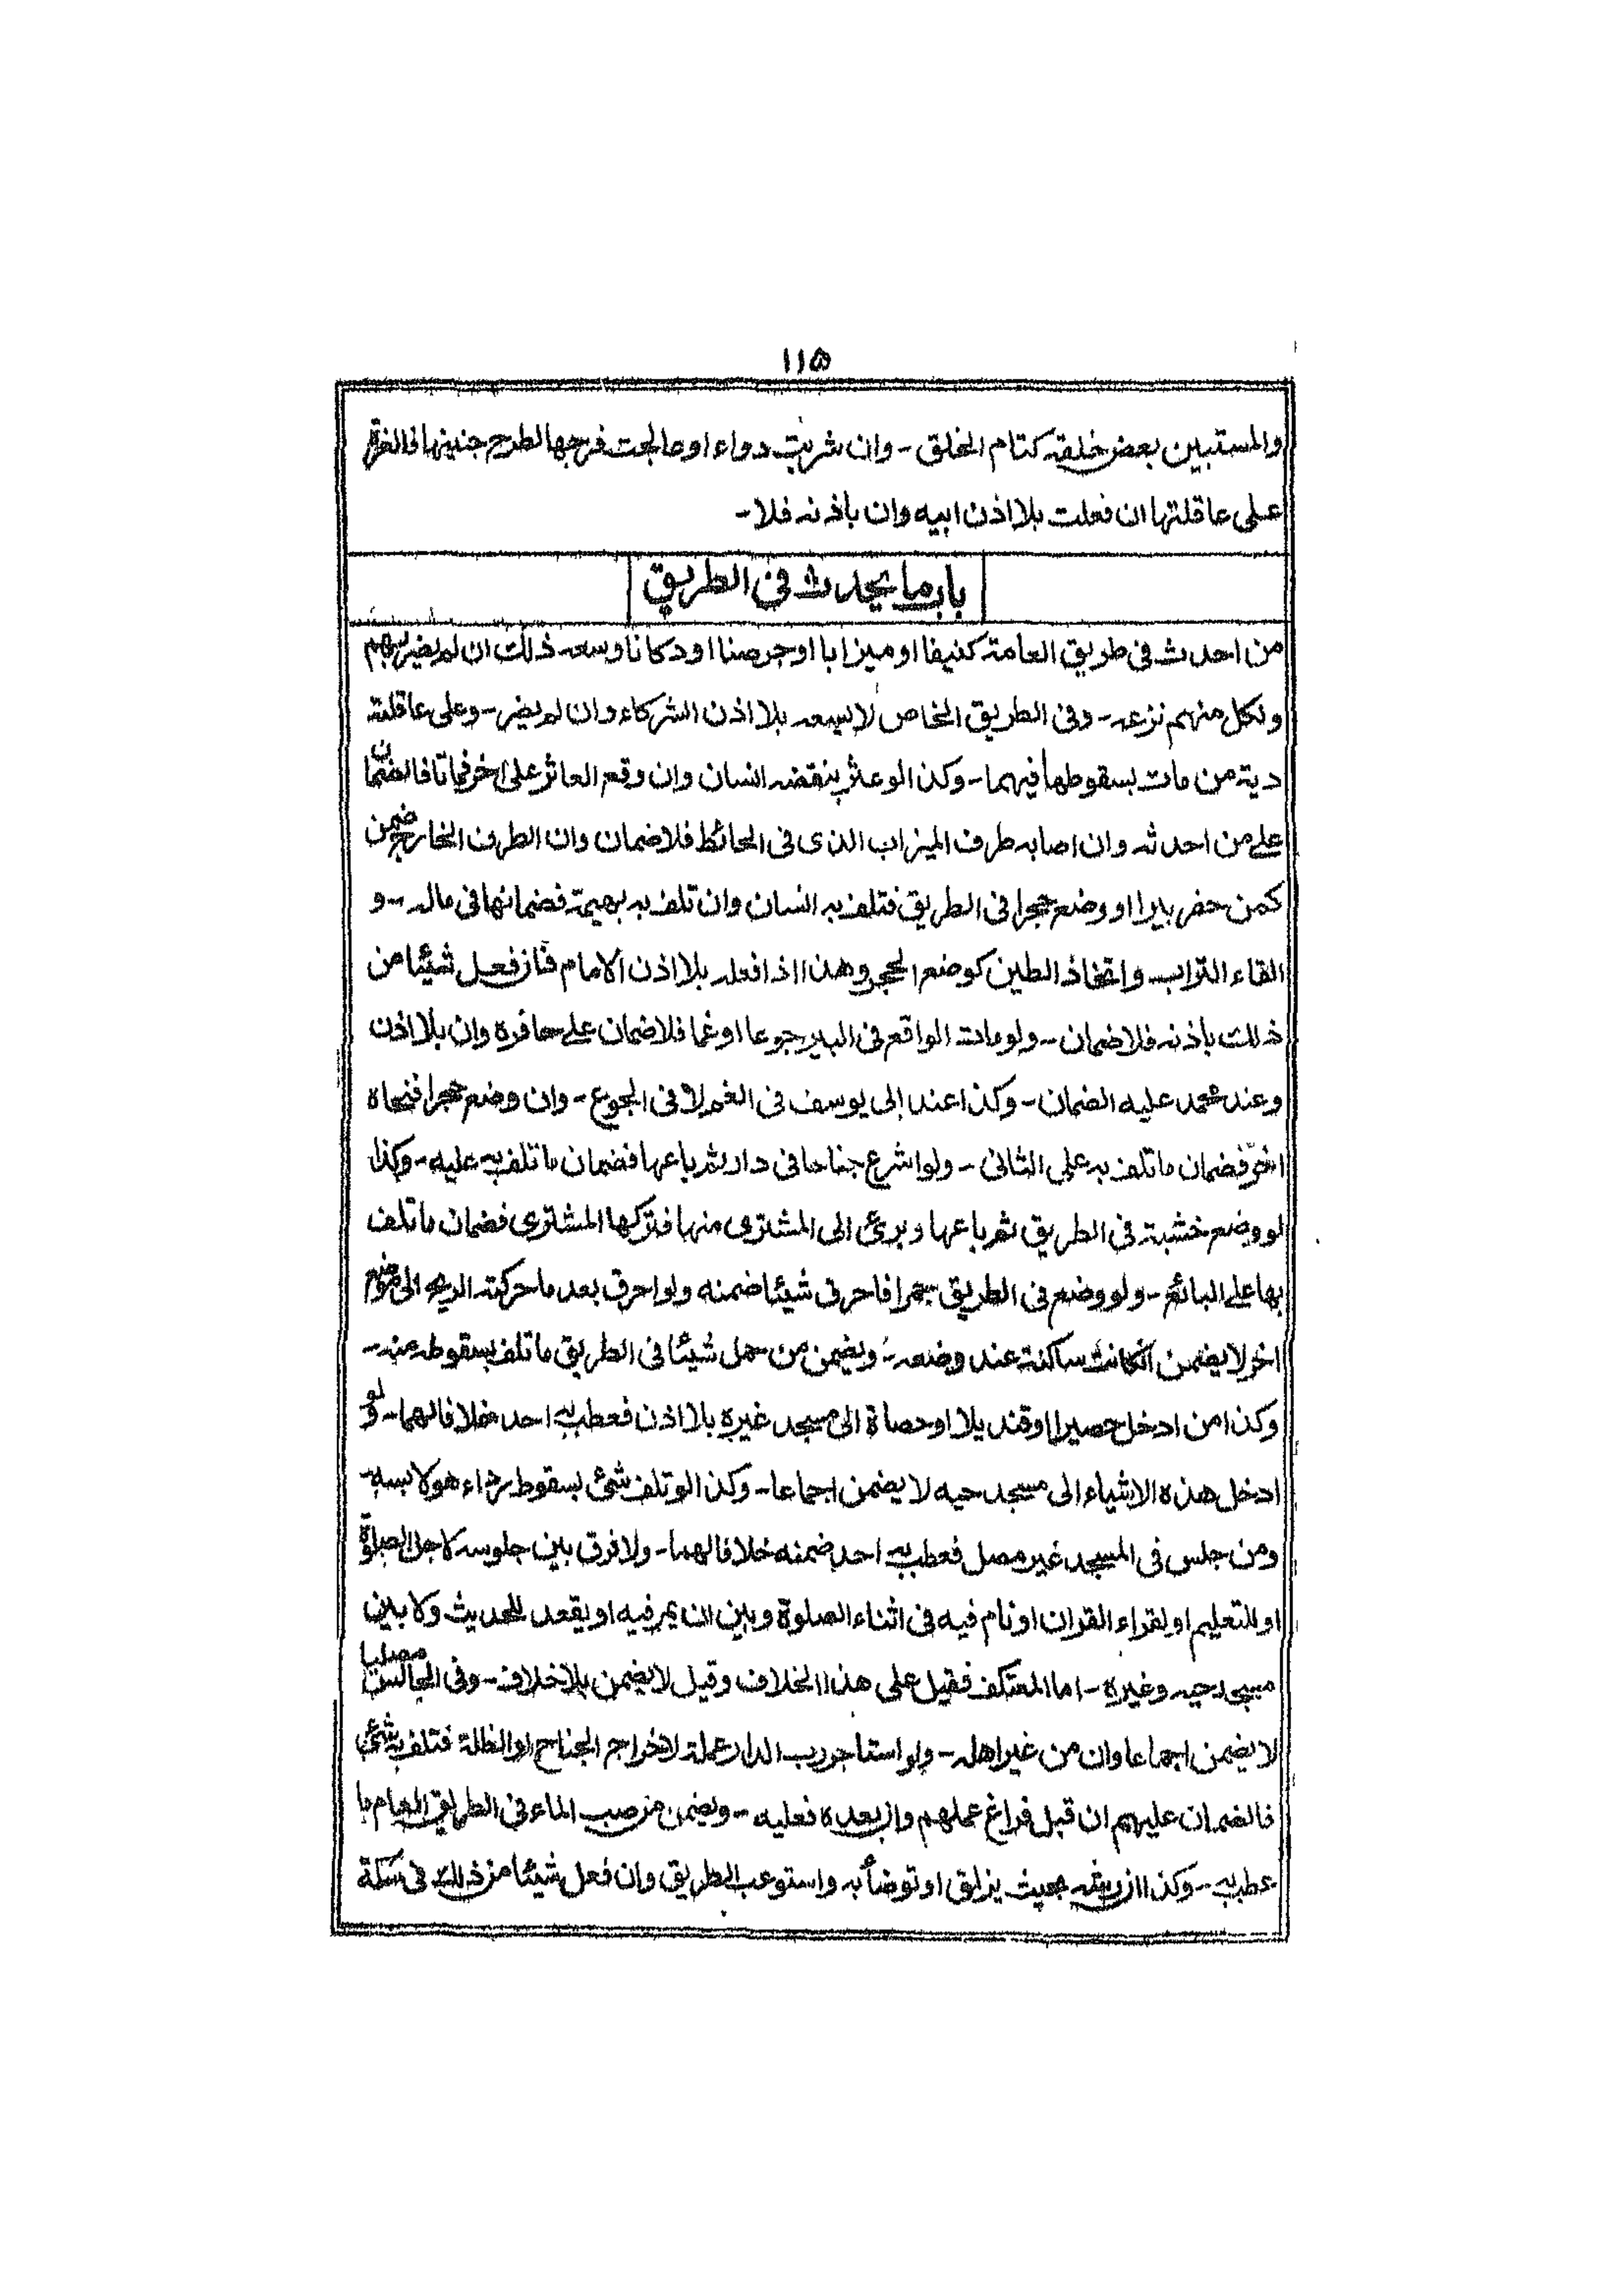 ١١٥
والمستبين بعض خلقته كتام الخلق - وان شربت دواء او عالجت فرجها لطرح جنينها فالغرة
على عاقلتها ان فعلت بلا اذن ابيه وان باذنه فلا -
باب ما يحدث فى الطريق
من احدث فى طريق العامة كنيفا او ميزابا او جرصنا او دكانا وسعه ذلك ان لم يضر بهم
ولكل منهم نزعه - وفى الطريق الخاص لا يسعه بلا اذن الشركاء وان لم يضر - وعلى عاقلته
دية من مات بسقوطها فيهما - وكذا لو عثر بنقضه انسان وان وقع العاثر على اخر فماتا فالضمان
على من احدثه وان اصابه طرف الميزاب الذى فى الحائط فلا ضمان وان الطرف الخارج ضمن
كمن حفر بيرا او وضع حجرا فى الطريق فتلف به انسان وان تلف به بهيمة فضمانها فى ماله - و
القاء التراب واتخاذ الطين كوضع الحجر وهذا اذا فعله بلا اذن الامام فان فعل شيئا من
ذلك باذنه فلا ضمان - ولو مات الواقع فى البير جوعا او غما فلا ضمان على حافره وان بلا اذن
وعند محمد عليه الضمان - وكذا عند ابى يوسف فى الغم لا فى الجوع - وان وضع حجرا فنحاه
اخر فضمان ما تلف به على الثانى - ولو اشرع جناحا فى دار ثم باعها فضمان ما تلف به عليه - وكذا
لو وضع خشبة فى الطريق ثم باعها وبرئ الى المشترى منها فتركها المشترى فضمان ما تلف
بها على البائع - ولو وضع فى الطريق جمرا فاحرق شيئا ضمنه ولو احرق بعد ما حركته الريح الى موضع
اخر لا يضمن ان كانت ساكنة عند وضعه - ويضمن من حمل شيئا فى الطريق ما تلف بسقوطه منه -
وكذا من ادخل حصيرا او قنديلا او حصاة الى مسجد غيره بلا اذن فعطب به احد خلافا لهما - ولو
ادخل هذه الاشياء الى مسجد حيه لا يضمن اجماعا - وكذا لو تلف شئ بسقوط رداء هو لابسه -
ومن جلس فى المسجد غير مصل فعطب به احد ضمنه خلافا لهما - ولا فرق بين جلوسه لاجل الصلوة
او للتعليم او لقراء القران او نام فيه فى اثناء الصلوة وبين ان يمر فيه او يقعد للحديث ولا بين
مسجد حيه وغيره - اما المعتكف فقيل على هذا الخلاف وقيل لا يضمن بلا خلاف - وفى الجالس مصليا
لا يضمن اجماعا وان من غير اهله - ولو استاجر رب الدار عملة لاخراج الجناح او الظلة فتلف به شئ
فالضمان عليهم ان قبل فراغ عملهم وان بعده فعليه - ويضمن من صب الماء فى الطريق العام ما
عطب به - وكذا ان رشه بحيث يزلق او توضأ به واستوعب الطريق وان فعل شيئا من ذلك فى سكة